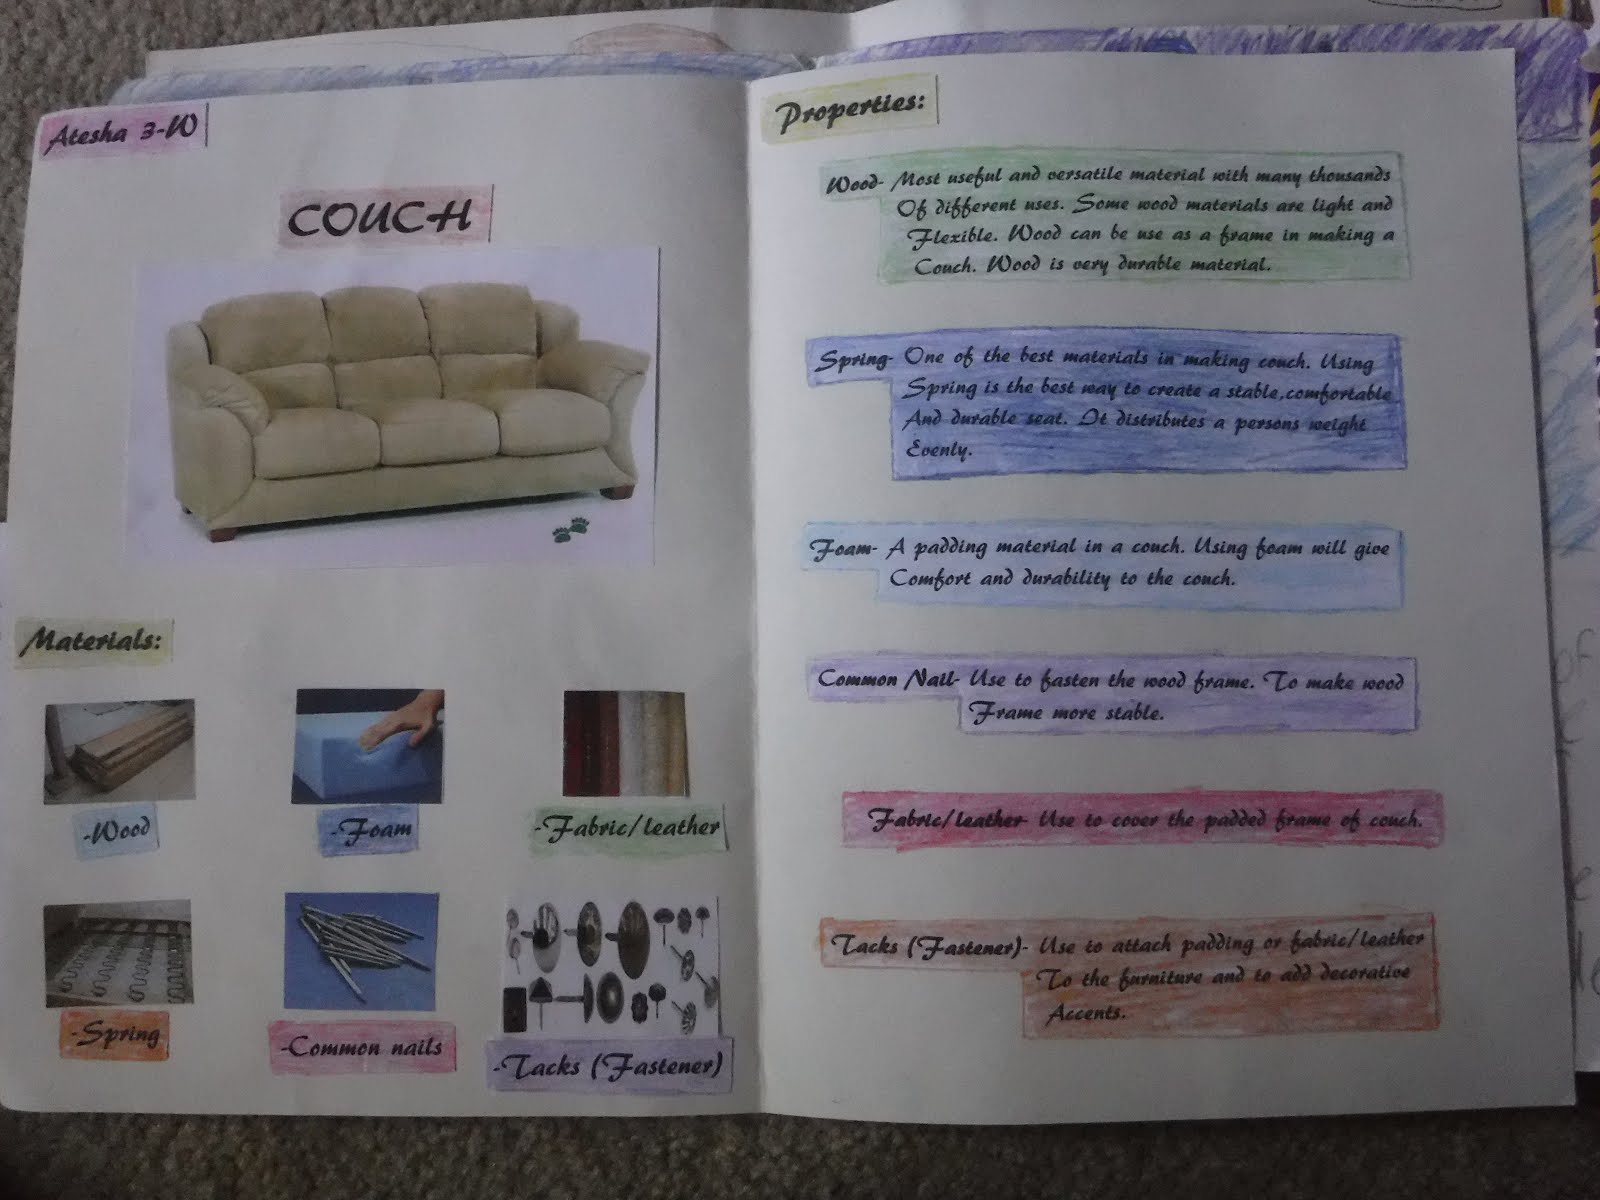 Atesha 3-W
COUCH
Materials:
-Wood
-Foam
-Fabric/leather
-Spring
-Common nails
-Tacks (Fastener)
Properties:
Wood- Most useful and versatile material with many thousands
Of different uses. Some wood materials are light and
Flexible. Wood can be use as a frame in making a
Couch. Wood is very durable material.
Spring- One of the best materials in making couch. Using
Spring is the best way to create a stable,comfortable
And durable seat. It distributes a persons weight
Evenly.
Foam- A padding material in a couch. Using foam will give
Comfort and durability to the couch.
Common Nail- Use to fasten the wood frame. To make wood
Frame more stable.
Fabric/leather- Use to cover the padded frame of couch.
Tacks (Fastener)- Use to attach padding or fabric/leather
To the furniture and to add decorative
Accents.